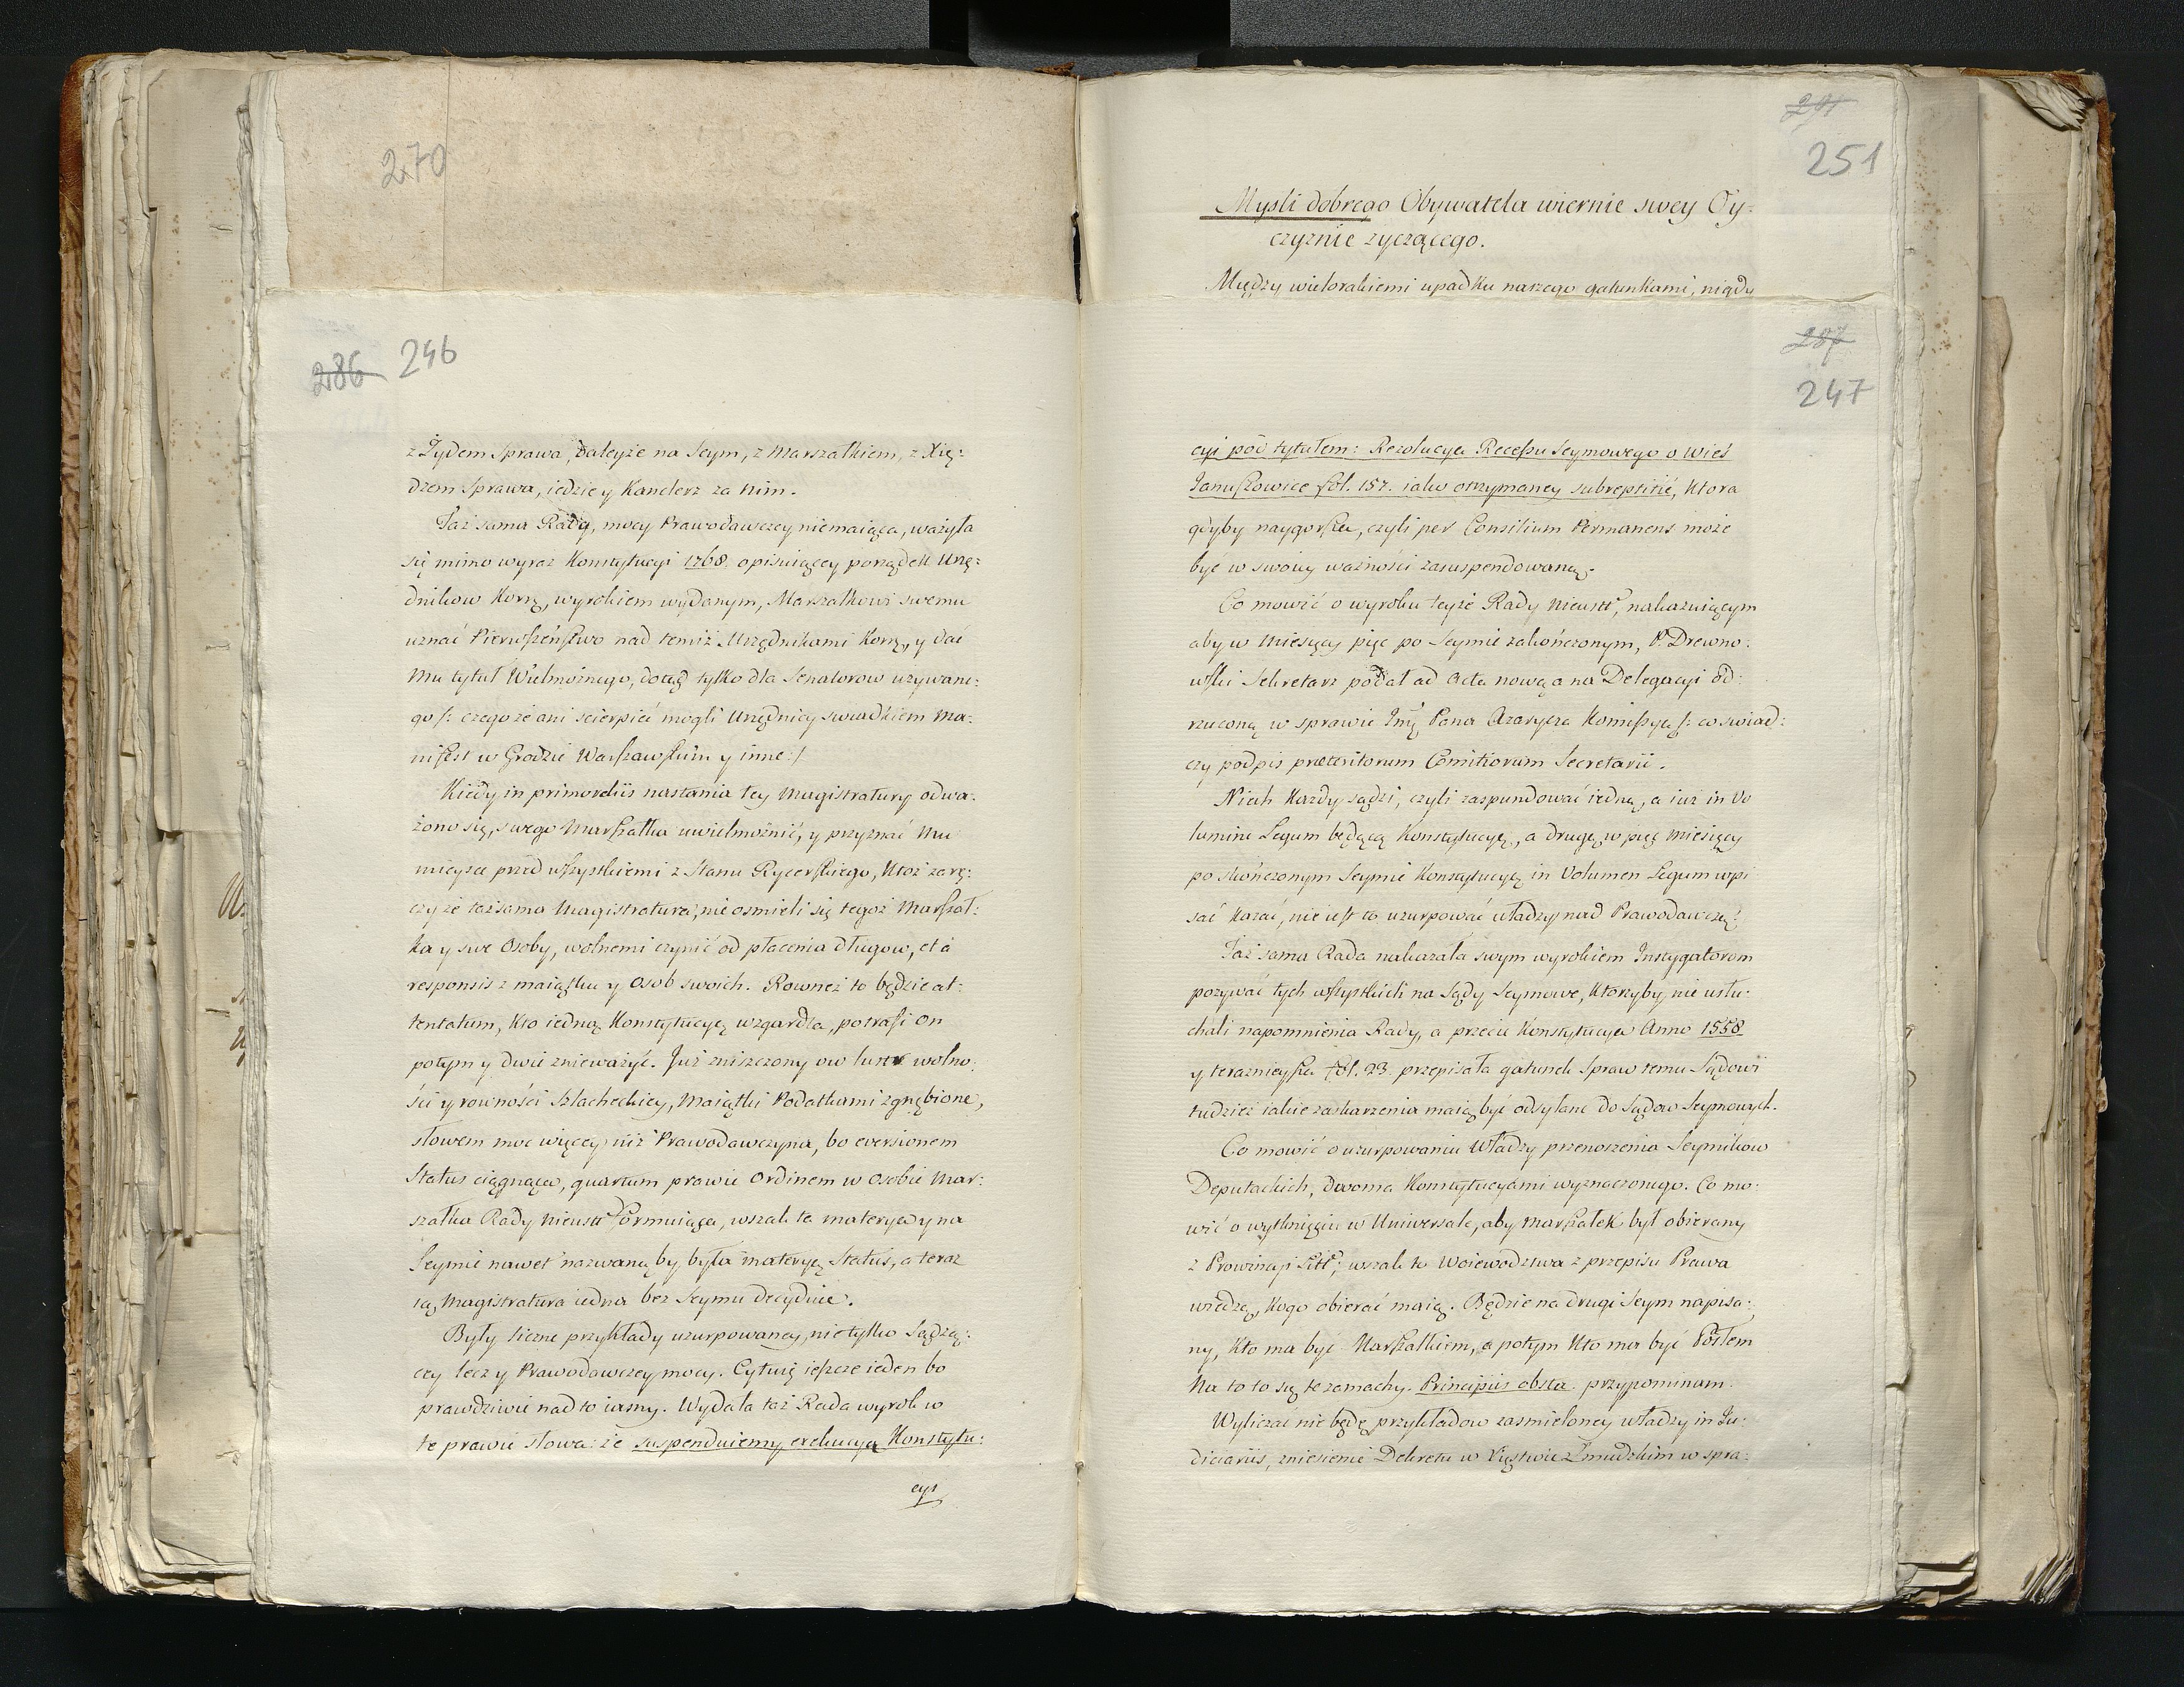 270
286 246
z Żydem Sprawa, daleyże na Seym, z Marszałkiem, z Xię:
dzem Sprawa, iedzie y Kanclerz za nim.
Taż sama Rada, mocy Prawodawczey niemaiąca, ważyła
się mimo wyraz Konstytucyi 1768. opisuiącey porządek Urzę:
dnikow Korn, wyrokiem wydanym, Marszałkowi swemu
uznać Pierwszeństwo nad temiż Urzędnikami Korn, y dać
Mu tytuł Wielmożnego, dotąd tylko dla Senatorow uzywane:
go /: czego że ani scierpieć mogli Urzędnicy swiadkiem Ma:
nifest w Grodzie Warszawskim y inne :/
Kiedy in primordiis nastania tey Magistratury odwa:
żono się, swego Marszałka uwielmożnić, y przyznać Mu
mieysce przed wszystkiemi z Stanu Rycerskiego, Ktoż zarę:
czy że taż sama Magistratura, nie osmieli się tegoż Marszał:
ka y swe Osoby, wolnemi czynić od płacenia długow, et a
responsis z maiątku y Osob swoich. Rowneż to będzie at:
tentatum, Kto iedną Konstytucyę wzgardza, potrafi On
potym y dwie znieważyć. Już zniszczony ow lustr wolno:
ści y rowności Szlacheckiey, Maiątki Podatkami zgnębione,
słowem moc więcey niż Prawodawczyna, bo eversionem
Status ciągnąca, quartum prawie Ordinem w Osobie Mar:
szałka Rady Nieustt formuiąca, wszak ta materya y na
Seymie nawet nazwaną by była materyą Status, a teraz
ią Magistratura iedna bez Seymu decyduie.
Były liczne przykłady uzurpowaney, nie tylko Sądzą:
cey lecz y Prawodawczey mocy. Cytuię ieszcze ieden bo
prawdziwie nad to iasny. Wydała taż Rada wyrok w
te prawie słowa: że suspenduiemy exekucyą Konstytu:
cyi
291
251
Mysli dobrego Obywatela wiernie swey Oy:
czyznie zyczącego.
Między wielorakiemi upadku naszego gatunkami, nigdy
287
247
cyi pod tytułem: Rezolucya Recessu Seymowego o Wieś
Januszowice fol. 157. iako otrzymaney subreptitie, Ktora
gdyby naygorsza, czyli per Consilium Permanens może
być w swoiey ważności zasuspendowaną.
Co mowić o wyroku teyże Rady Nieustt, nakazuiącym
aby w Miesięcy pięć po Seymie zakończonym, P. Drewno:
wski Sekretarz podał ad Acta nową a na Delegacyi od:
rzuconą w sprawie Jmć Pana Azarycza Komissyą /: co swiad:
czy podpis praeteritorum Comitiorum Secretarii.
Niech Kazdy sądzi, czyli zaspundować iedną, a iuż in Vo
lumine Legum będącą Konstytucyę, a drugą w pięć miesięcy
po skończonym Seymie Konstytucyę in Volumen Legum wpi
sać Kazać, nie iest to uzurpować władzy nad Prawodawczą?
Taż sama Rada nakazała swym wyrokiem Instygatorom
pozywać tych wszystkich na Sądy Seymowe, Ktorzyby nie usłu:
chali napomnienia Rady, a przecie Konstytucya Anno 1558
y teraznieysza fol. 23. przepisała gatunek Spraw temu Sądowi
tudzież iakie zaskarzenia maią być odsyłane do Sądow Seymowych.
Co mowić o uzurpowaniu Władzy przenoszenia Seymikow
Deputackich, dwoma Konstytucyami wyznaczonego. Co mo:
wić o wytknięciu w Uniwersale, aby Marszałek był obierany
z Prowincyi Litt; wszak te Woiewodztwa z przepisu Prawa
wiedzą, Kogo obierać maią. Będzie na drugi Seym napisa:
ny, Kto ma być Marszałkiem, a potym Kto ma być Posłem
Na to to są te zamachy. Principiis obsta. przypominam.
Wyliczać nie będę przykładow zasmieloney władzy in Ju:
diciariis, zniesienie Dekretu w Xięstwie Zmudzkim w spra: